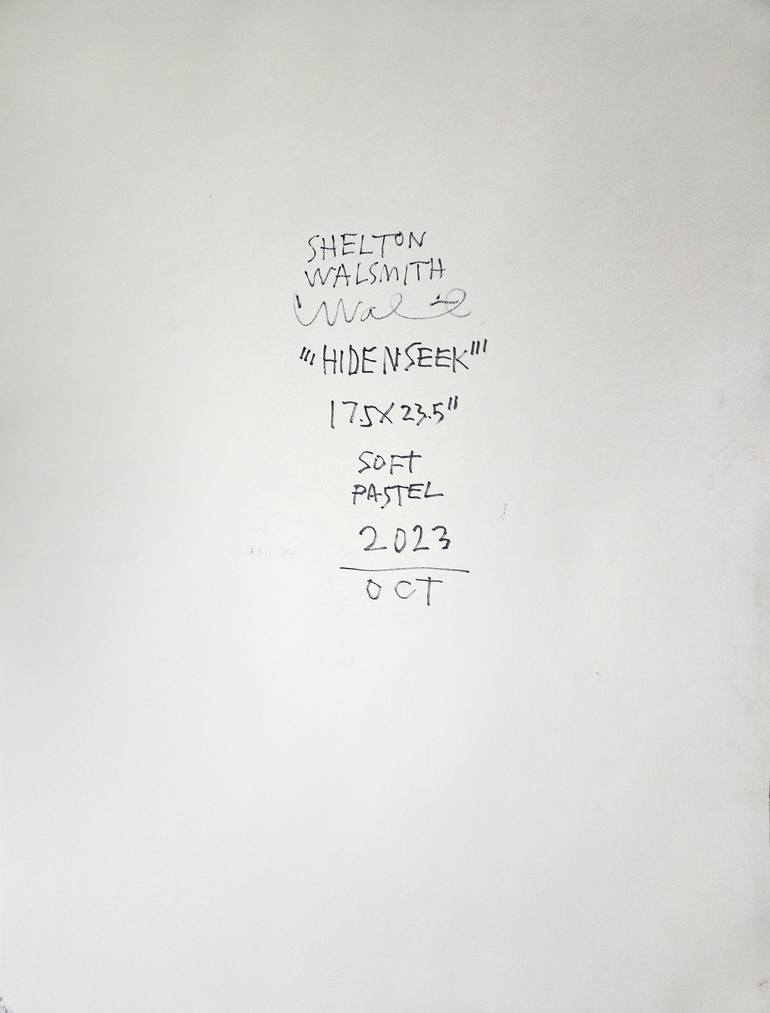 SHELTON
WALSMITH
"'HIDENSEEK"'
17.5X23.5"
SOFT
PASTEL
2023
OCT